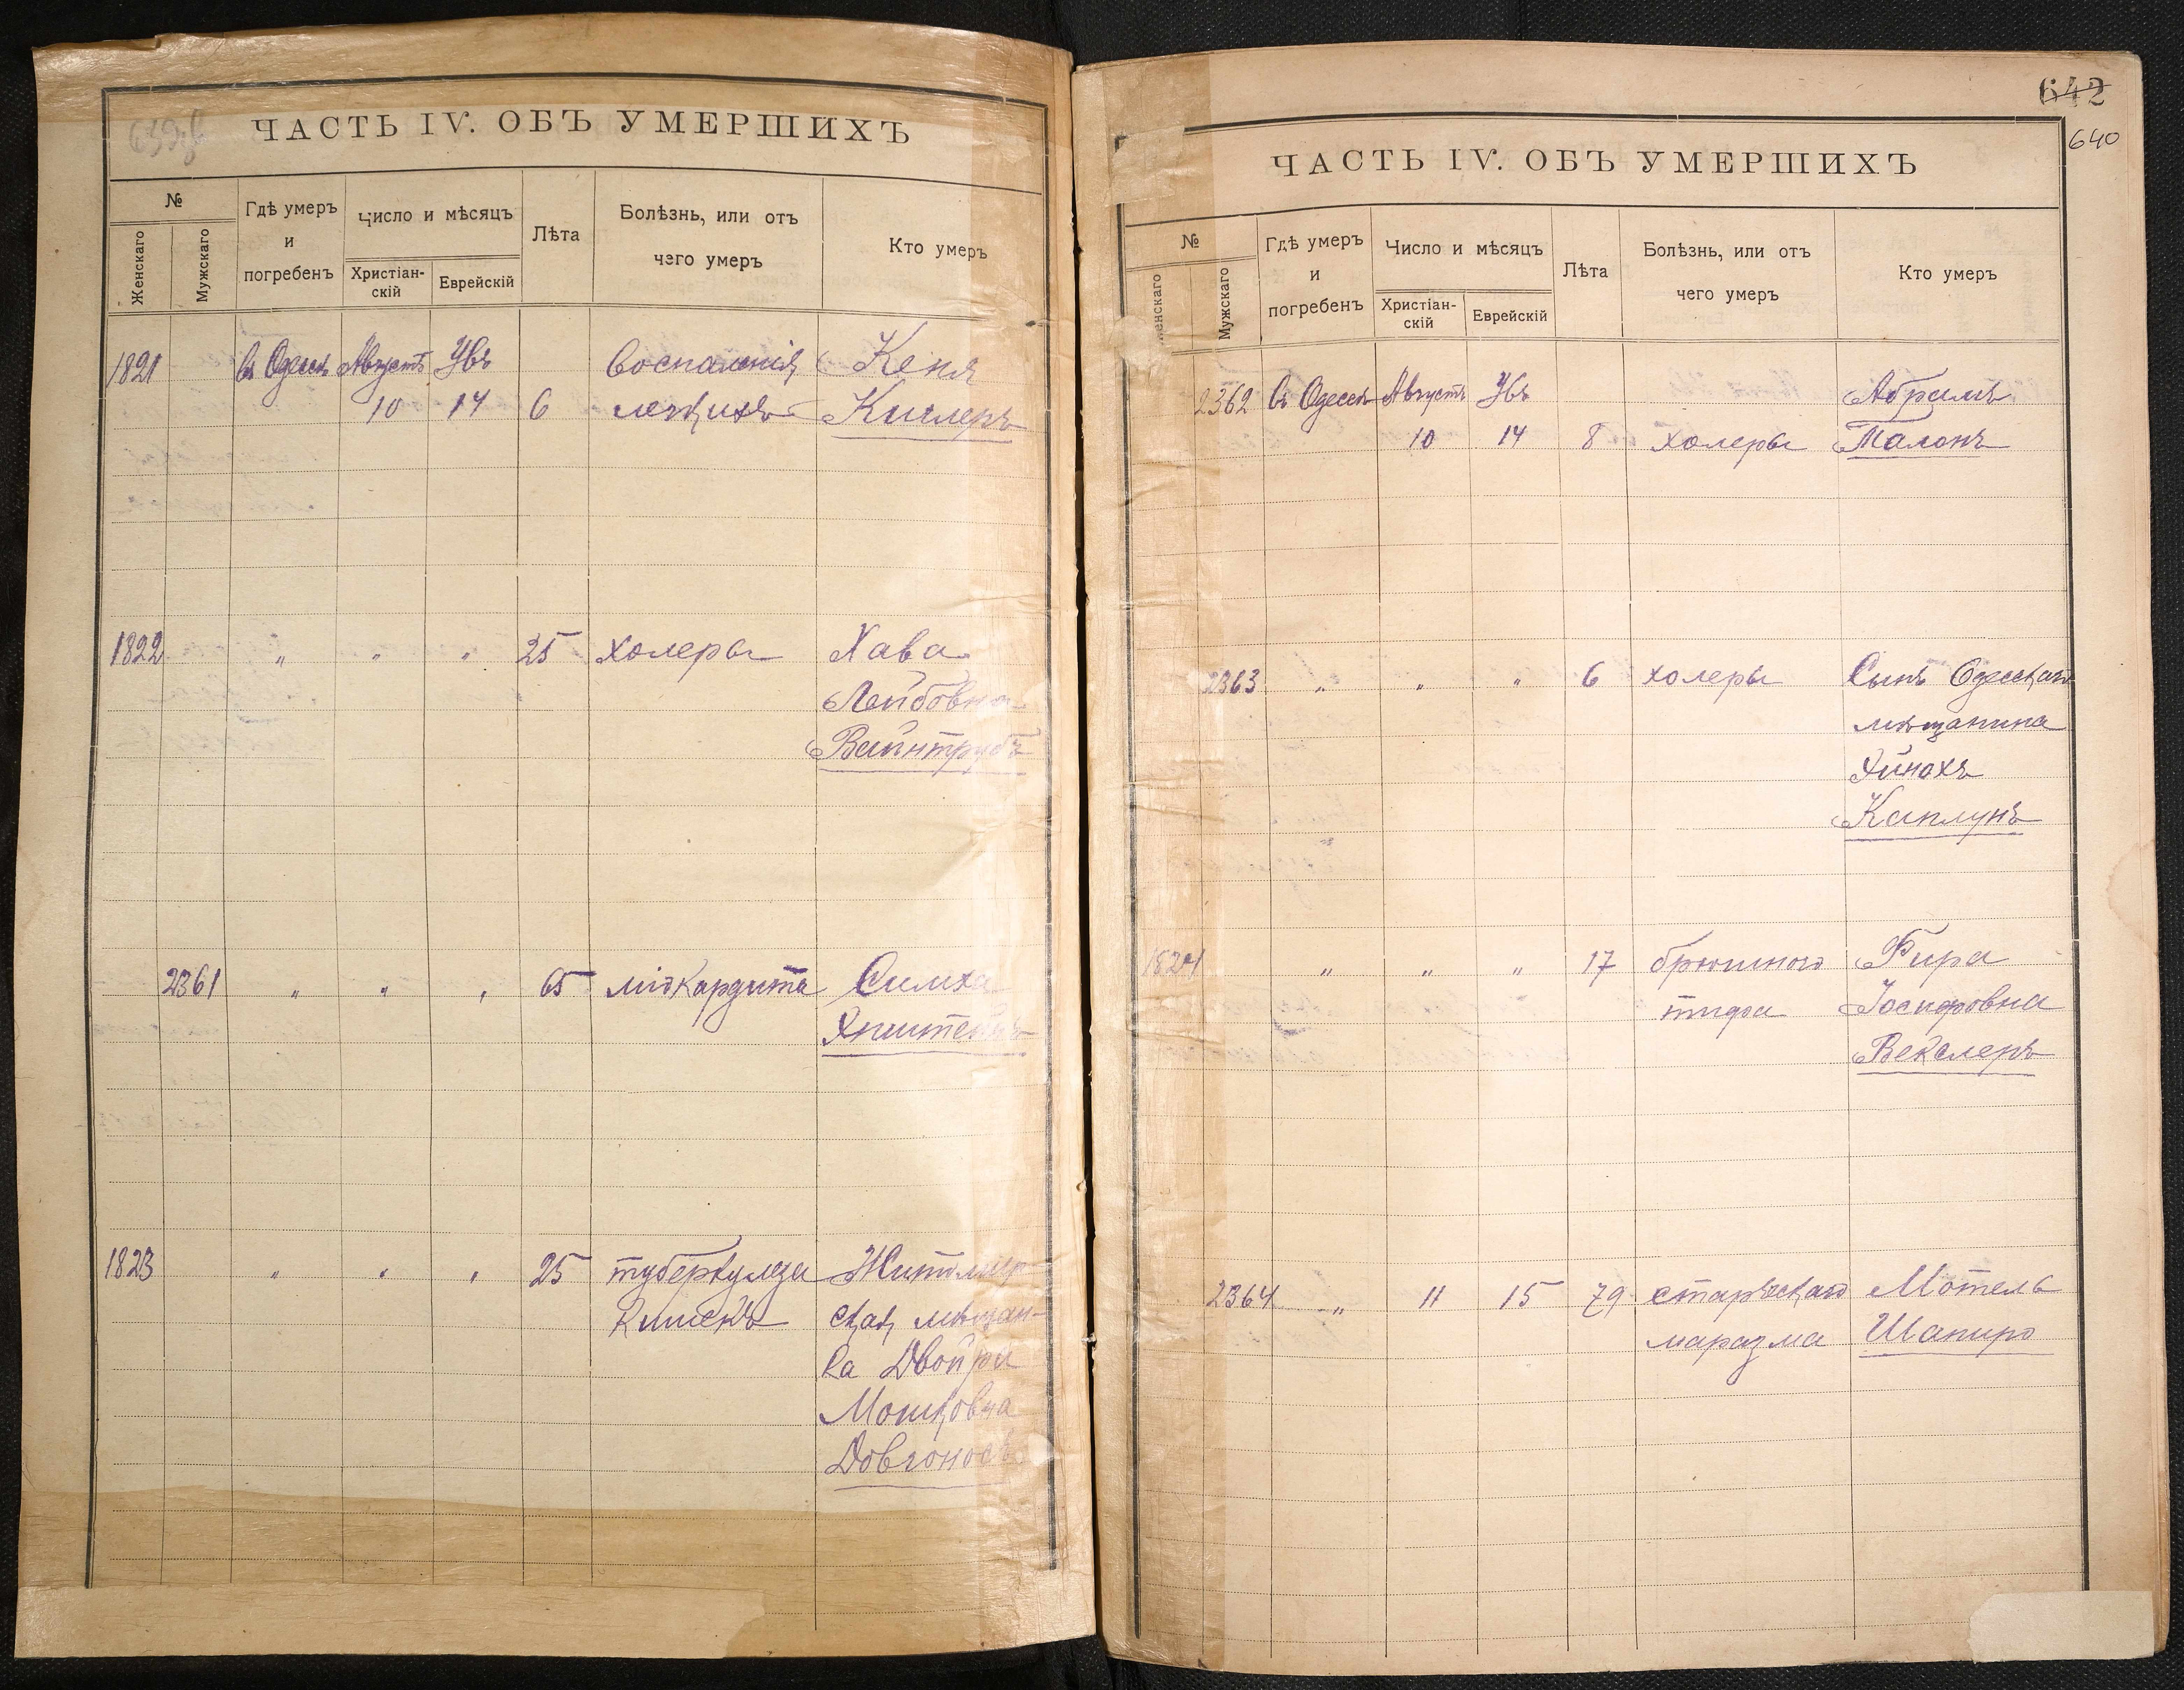 ЧАСТЬ IV. ОБЪ УМЕРШИХЪ
№
Женскаго
Мужскаго
Гдѣ умеръ и погребенъ
Число и мѣсяцъ
Христіан-скій
Еврейскій
Лѣта
Болѣзнь, или отъ чего умеръ
Кто умеръ
1821 въ Одессѣ Августъ Убъ Воспаленія Кеня
10 14 6 легкихъ Килеръ
1822 " " " 25 холеры Хава
Лейбовна
Вайнтрубъ
2361 " " " 65 міокардита Симха
Эпштейнъ
1823 " " " 25 туберкулеза Житомир-
кишекъ ская мѣщан-
ка Двойра
Мошковна
Довгоносъ
642
640
ЧАСТЬ IV. ОБЪ УМЕРШИХЪ
№
Женскаго
Мужскаго
Гдѣ умеръ и погребенъ
Число и мѣсяцъ
Христіан-скій
Еврейскій
Лѣта
Болѣзнь, или отъ чего умеръ
Кто умеръ
2362 въ Одессѣ Августъ Убъ Абрамъ
10 14 8 холеры Талонъ
2363 " " " 6 холеры Сынъ Одесскаго
мѣщанина
Эйнохъ
Каплунъ
1824 " " " 17 брюшного Фира
тифа Іосифовна
Векслеръ
2364 " 11 15 79 старческаго Мотель
маразма Шапиро